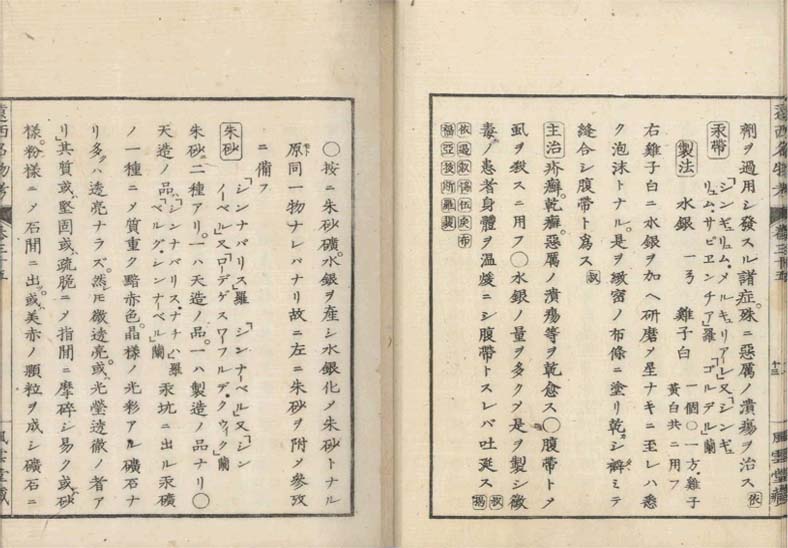 劑ヲ過用シ發スル諸症。殊ニ惡厲ノ潰瘍ヲ治ス 依
汞帶 「シンギュリュム、メルキュリアーレ」又「シンギュ
リュム、サピエンチア」羅 「ゴルデル」蘭
製法
水銀 一ヲ 雞子白 一個〇一方、雞子
黃白共ニ用フ
右雞子白ニ水銀ヲ加ヘ研磨〆星ナキニ至レハ悉
ク泡沫トナル。是ヲ緻密ノ布條ニ塗リ乾シ
縫合シ腹帶ト爲ス
主治 疥癬。乾癬。惡厲ノ潰瘍等ヲ乾愈ス〇腹帶ト〆
虱ヲ殺スニ用フ〇水銀ノ量ヲ多ク〆是ヲ製シ黴
毒ノ患者身體ヲ溫煖ニシ腹帶トスレバ吐涎ス
遠西名物考 卷三十五
十三
風雲堂藏
〇按ニ朱砂礦。水銀ヲ産シ水銀化〆朱砂トナル
原同一物ナレバナリ故ニ左ニ朱砂ヲ附〆參攷
ニ備フ
朱砂 「シンナバリス」羅 「シンナーベル」又「シン
イーベル」又「ローデゲスワーフルデ、クウィク」蘭
朱砂ニ二種アリ。一ハ天造ノ品。一ハ製造ノ品ナリ〇
天造ノ品「シンナバリス、ナチハ」羅
「ベルグ、シンナーベル」蘭 汞坑ニ出ル汞礦
ノ一種ニ〆質重ク黯赤色。晶樣ノ光彩アル礦石ナ
リ多クハ透亮ナラズ。然レ𪜈微透亮。或ハ光瑩透徹ノ者ア
リ其質或ハ堅固或ハ疏脆ニ〆指間ニ摩碎シ易ク或ハ砂
樣。粉樣ニ〆石間ニ出。或ハ美赤ノ顆粒ヲ成シ礦石ニ
遠西名物考 卷三十五
風雲堂藏